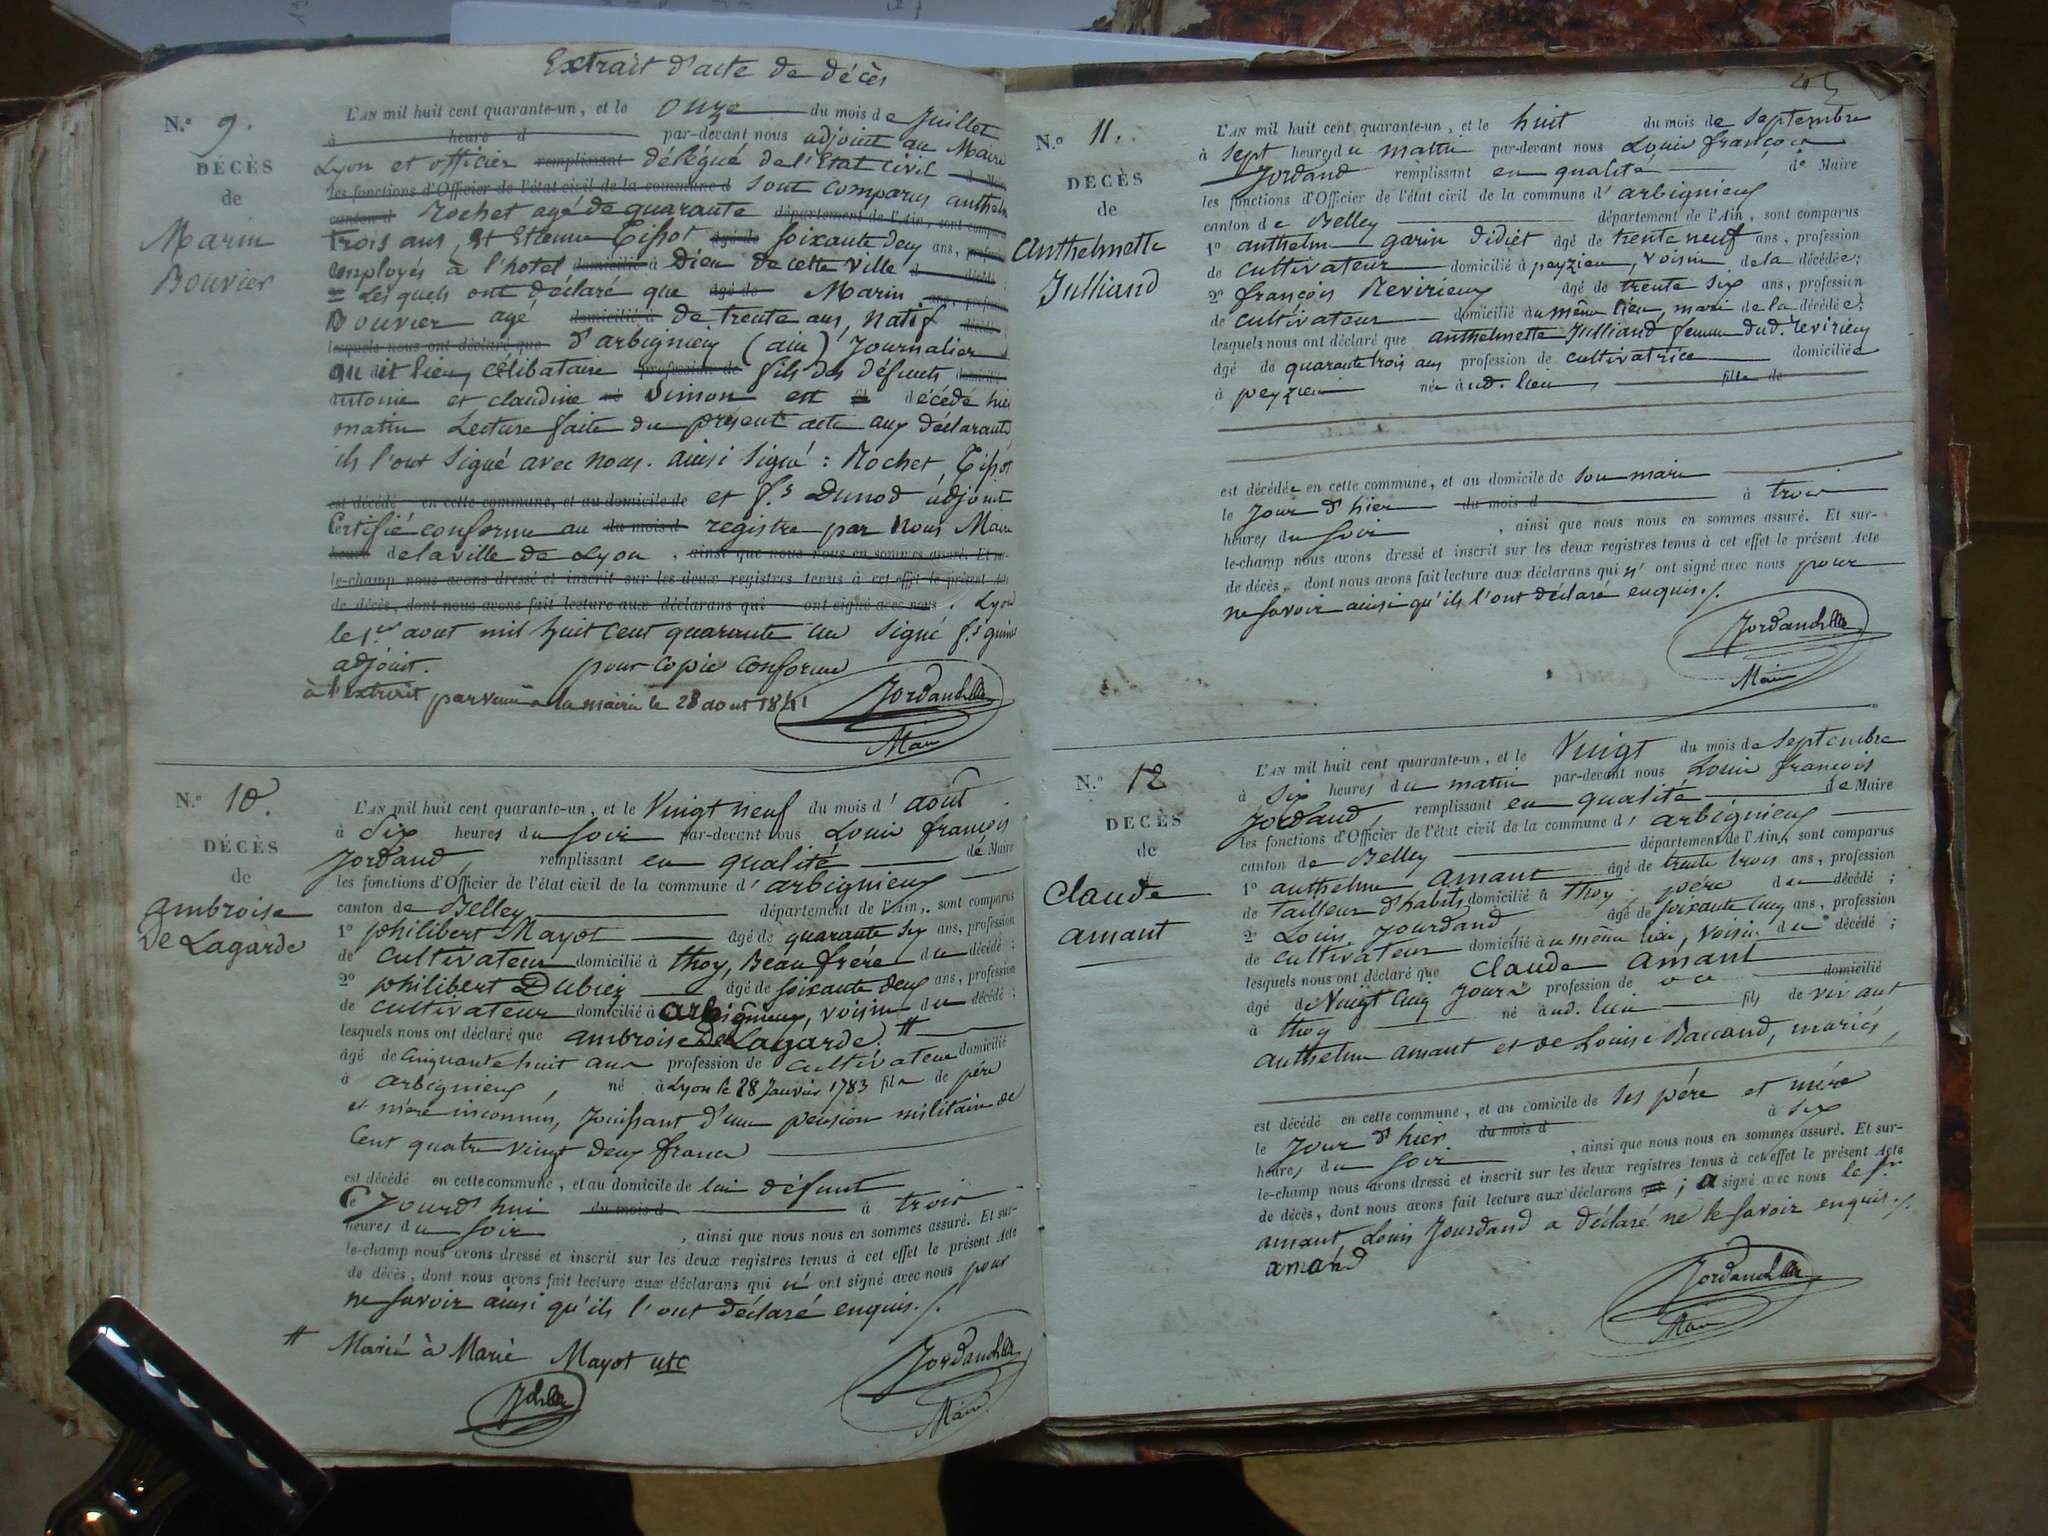 Extrait d'acte de décès
N.° 9.
DÉCÈS
de
Marin
Bouvier
L'AN mil huit cent quarante-un, et le onze du mois de Juillet
à heure d par-devant nous adjoint au Maire
Lyon et officier remplissant délégué de l'Etat civil
les fonctions d'Officier de l'état civil de la commune d sont comparus anthelm
canton d Rochet agé de quarante département de l'Ain, sont comparus
trois ans, et Etienne Tissot âgé de soixante deux ans, profess
employés à l'hotel domicilié à Dieu de cette ville
Lesquels ont déclaré que âgé de Marin
Bouvier agé domicilié à de trente ans, natif
lesquels nous ont déclaré que d'arbignieu (ain) Journalier
au dit lieu, célibataire profession de fils des défunts
antoine et claudine né Simon est décédé hier
matin Lecture faite du présent acte aux déclarants
ils l'ont signé avec nous. ainsi signé : Rochet, Tissot
est décédé en cette commune, et au domicile de et f.s Dunod adjoint
Certifié conforme au du mois d registre par Nous Maire
heure de la ville de Lyon, ainsi que nous nous en sommes assuré. Et sur-
le-champ nous avons dressé et inscrit sur les deux registres tenus à cet effet le présent Acte
de décès, dont nous avons fait lecture aux déclarans qui ont signé avec nous. Lyon
le 1.er aout mil huit cent quarante un signé
adjoint. pour copie conforme
à l'extrait parvenu a la mairie le 28 aout 1841
Jordand
Maire
N.° 10.
DÉCÈS
de
ambroise
De Lagarde
L'AN mil huit cent quarante-un, et le Vingt neuf du mois d'août
à Six heures du soir par-devant nous Louis françois
Jordand, remplissant en qualité de Maire
les fonctions d'Officier de l'état civil de la commune d'arbignieux
canton de Belley département de l'Ain, sont comparus
1° philibert Mayot âgé de quarante six ans, profession
de cultivateur domicilié à thoy, Beau frére du décédé ;
2° philibert Dubiez âgé de soixante deux ans, profession
de cultivateur domicilié à arbignieux, voisin du décédé ;
lesquels nous ont déclaré que ambroise De Lagarde. #
âgé de Cinquante huit ans profession de cultivateur domicilié
à arbignieux, né à Lyon le 28 Janvier 1783 fils de pére
et mére inconnus, Jouissant d'une pension militaire de
Cent quatre vingt deux francs
est décédé en cette commune, et au domicile de lui défunt
le Jourd'hui du mois d à trois
heures du soir, ainsi que nous nous en sommes assuré. Et sur-
le-champ nous avons dressé et inscrit sur les deux registres tenus à cet effet le présent Acte
de décès, dont nous avons fait lecture aux déclarans qui n'ont signé avec nous pour
ne savoir ainsi qu'ils l'ont déclaré enquis./.
# Marié à Marie Mayot
Jordand
Maire
N.° 11.
DÉCÈS
de
Anthelmette
Julliand
L'AN mil huit cent quarante-un, et le huit du mois de septembre
à sept heures du matin par-devant nous Louis françois
Jordand remplissant en qualité de Maire
les fonctions d'Officier de l'état civil de la commune d'arbignieux
canton de Belley département de l'Ain, sont comparus
1° anthelm garin Didiet âgé de trente neuf ans, profession
de cultivateur domicilié à peyzieu, voisin de la décédée ;
2° françois Revirieux âgé de trente six ans, profession
de cultivateur domicilié au même lieu, mari de la décédée ;
lesquels nous ont déclaré que anthelmette Julliand femme dud. revirieux
âgé de quarante trois ans profession de cultivatrice domiciliée
à peyzieu née aud. lieu, fille de
est décédée en cette commune, et au domicile de son mari
le Jour d'hier du mois d à trois
heures du soir, ainsi que nous nous en sommes assuré. Et sur-
le-champ nous avons dressé et inscrit sur les deux registres tenus à cet effet le présent Acte
de décès, dont nous avons fait lecture aux déclarans qui n'ont signé avec nous pour
ne savoir ainsi qu'ils l'ont déclaré enquis./.
Jordand
Maire
N.° 12
DÉCÈS
de
Claude
amant
L'AN mil huit cent quarante-un, et le Vingt du mois de septembre
à six heures du matin par-devant nous Louis françois
Jordand remplissant en qualité de Maire
les fonctions d'Officier de l'état civil de la commune d'arbignieux
canton de Belley département de l'Ain, sont comparus
1° anthelme amant âgé de trente trois ans, profession
de Tailleur d'habits domicilié à thoy, pére du décédé ;
2° Louis Jourdand, âgé de soixante cinq ans, profession
de cultivateur domicilié au même lieu, voisin du décédé ;
lesquels nous ont déclaré que claude amant
âgé de Vingt cinq Jours profession de domicilié
à thoy né aud. lieu fils de vivant
anthelme amant et de Louise Baccand, mariés,
est décédé en cette commune, et au domicile de ses pére et mére
le Jour d'hier du mois d à six
heures du soir, ainsi que nous nous en sommes assuré. Et sur-
le-champ nous avons dressé et inscrit sur les deux registres tenus à cet effet le présent Acte
de décès, dont nous avons fait lecture aux déclarans ; a signé avec nous le s.r
amant Louis Jourdand a déclaré ne le savoir enquis./.
amand
Jordand
Maire